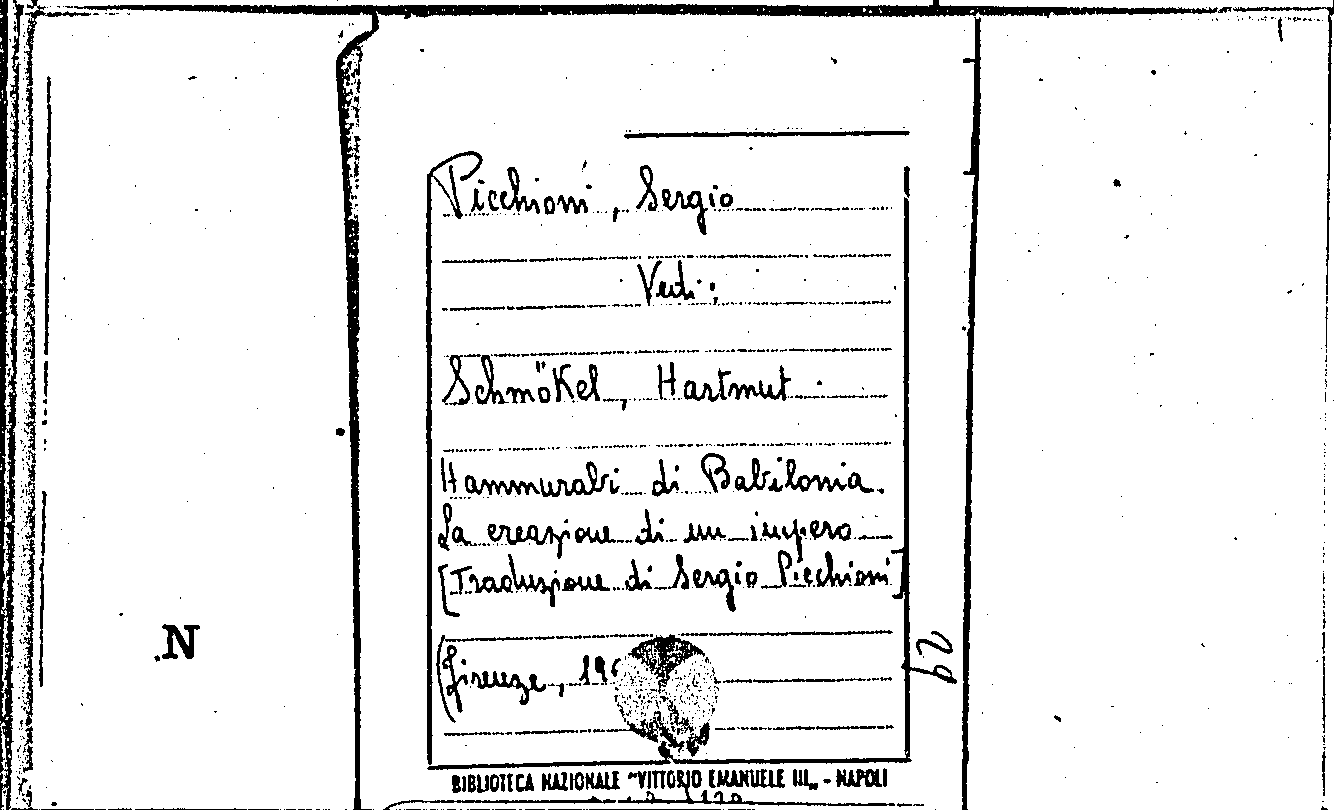 Picchioni, Sergio
Vedi:
Schmökel, Hartmut.
Hammurabi di Babilonia.
La creazione di un impero
[Traduzione di Sergio Picchioni]
(Firenze, 19
N
BIBLIOTECA NAZIONALE "VITTORIO EMANUELE III„ - NAPOLI